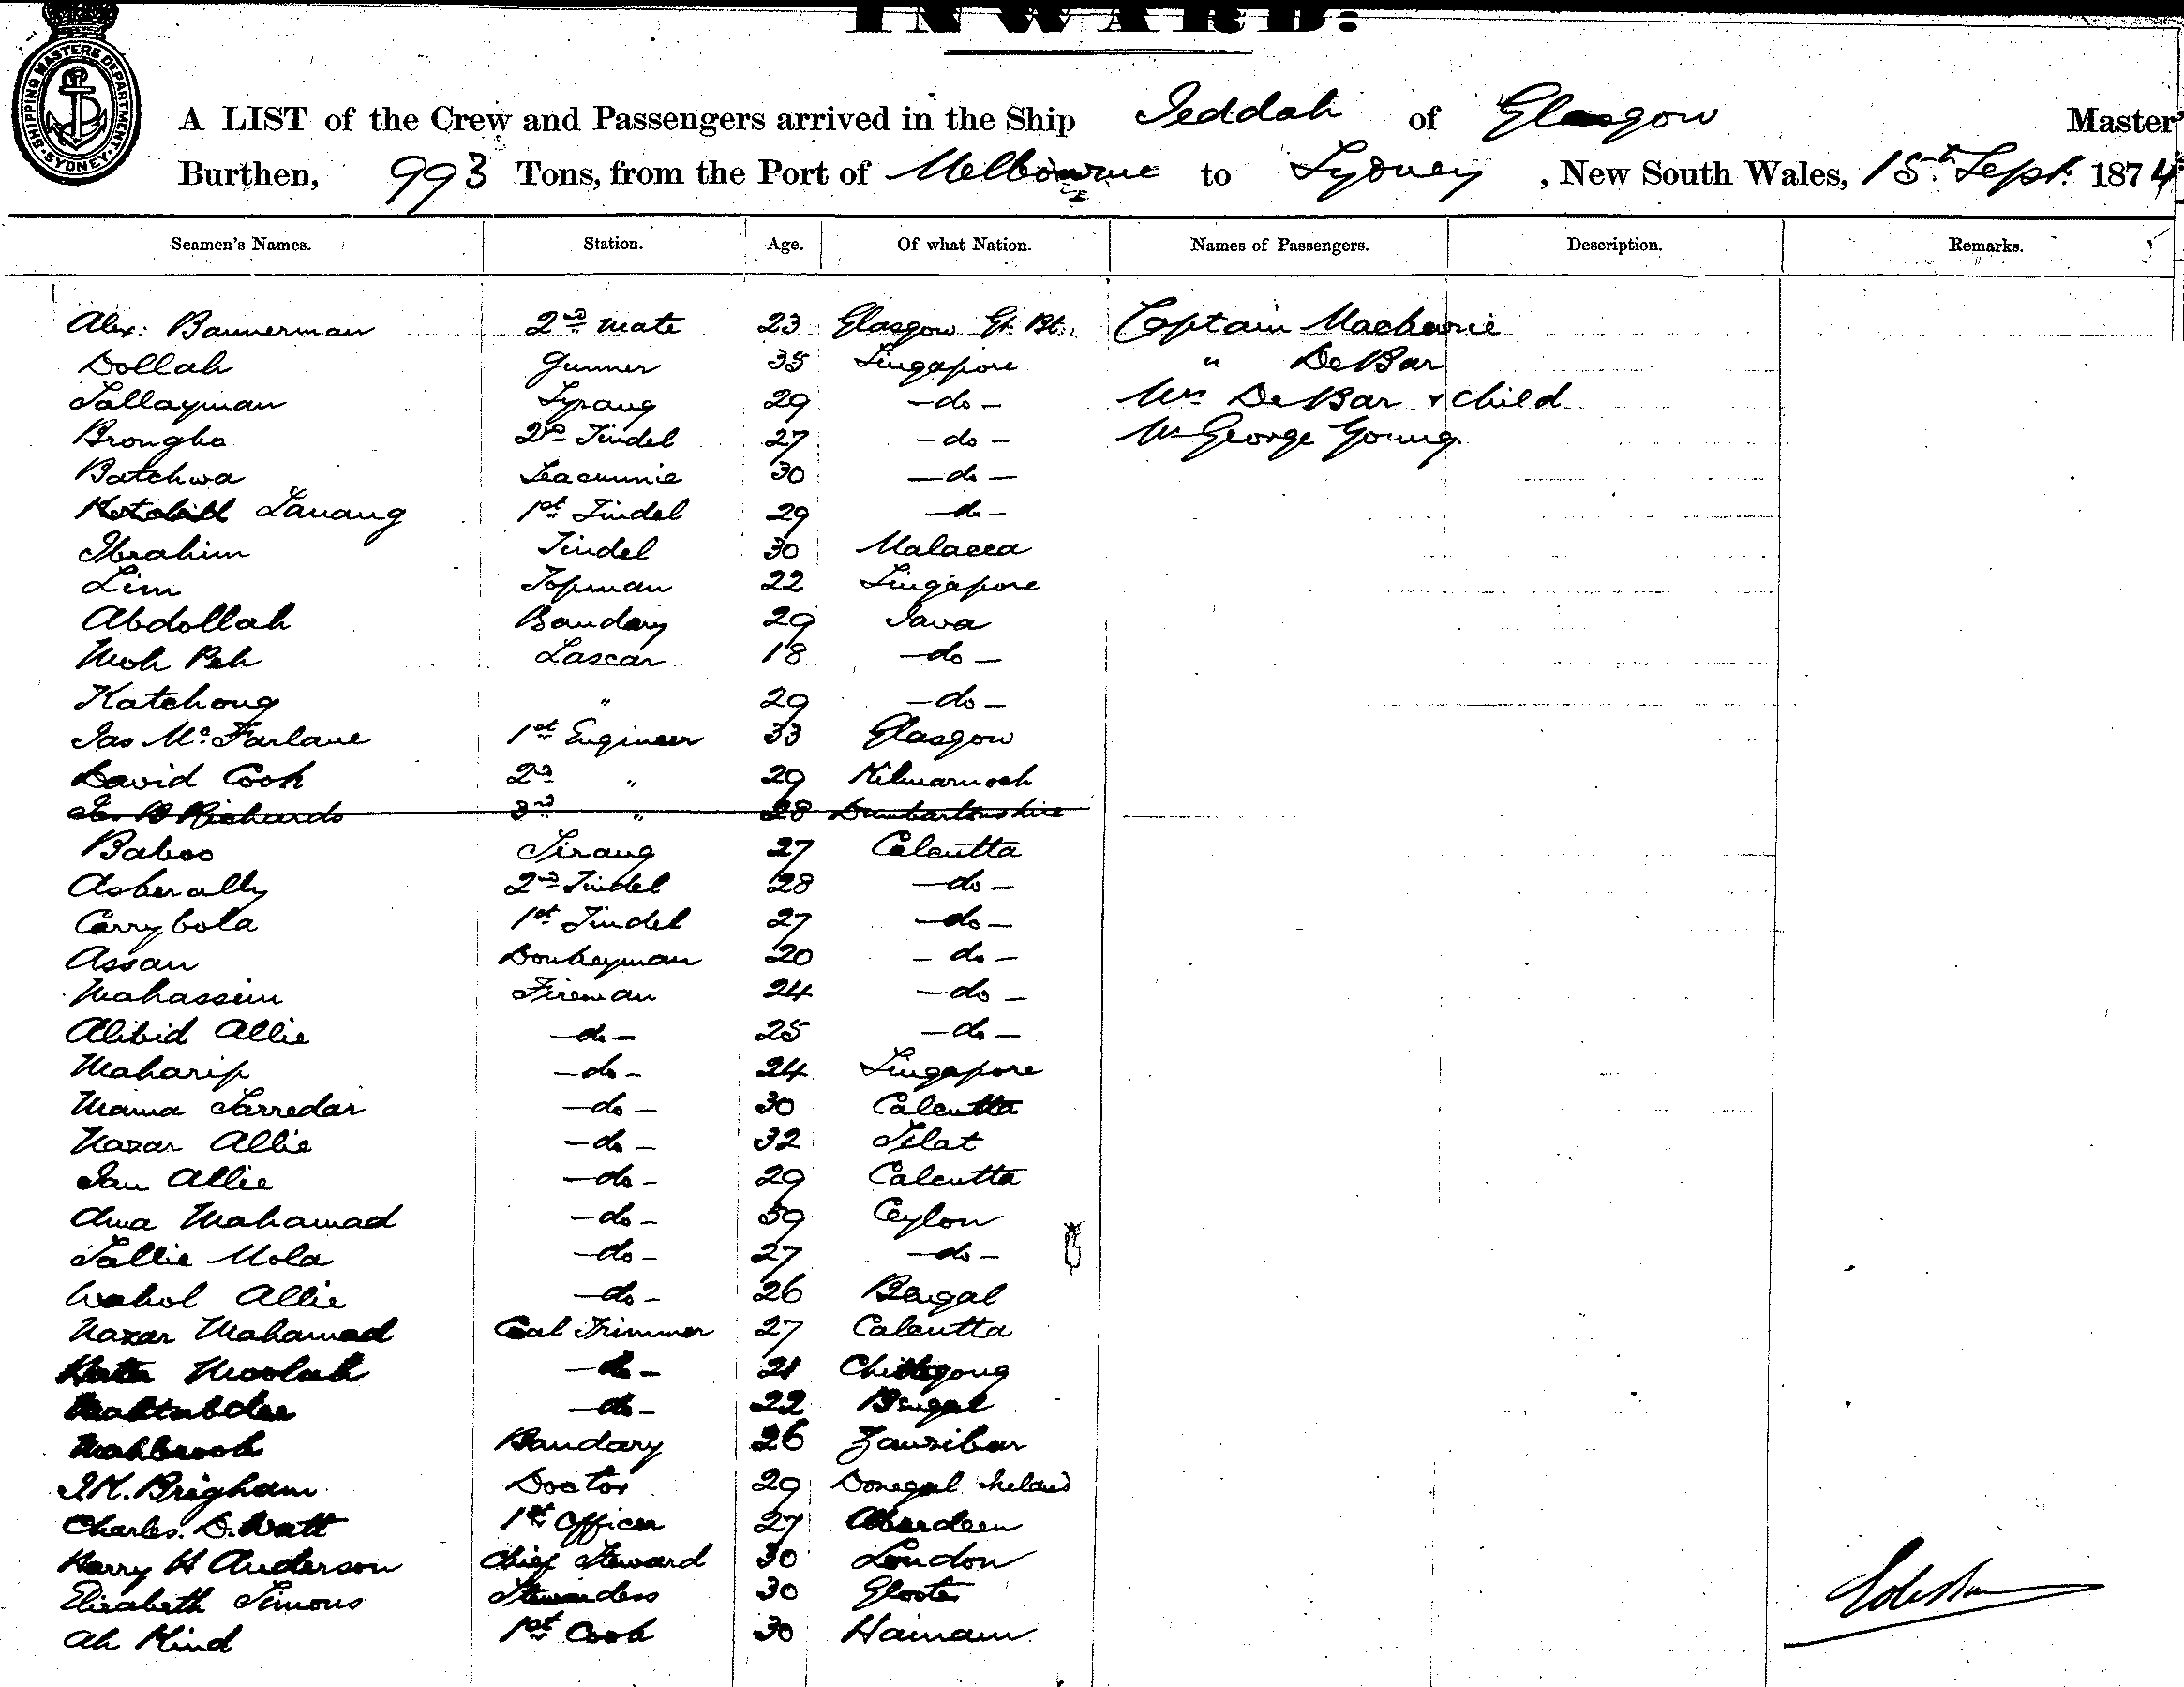 INWARD.
SHIPPING MASTERS DEPARTMENT SYDNEY
A LIST of the Crew and Passengers arrived in the Ship Jeddah of Glasgow Master
Burthen, 993 Tons, from the Port of Melbourne to Sydney, New South Wales, 15th Sept. 1874
Seamen's Names. Station. Age. Of what Nation. Names of Passengers. Description. Remarks.
Alex: Bannerman 2nd Mate 23 Glasgow Gt. Bt. Captain Mackenzie
Dollah Gunner 35 Singapore " DeBar
Sallayman Syrang 29 -do- Mrs DeBar & child
Brongha 2nd Tindel 27 -do- Mr George Young
Batchwa Seacunnie 30 -do-
Lanang 1st Tindel 29 -do-
Ibrahim Tindel 30 Malacca
Lim Topman 22 Singapore
Abdollah Bandary 29 Java
Moh Peh Lascar 18 -do-
Katchong " 29 -do-
Jas McFarlane 1st Engineer 33 Glasgow
David Cook 2nd " 29 Kilmarnock
Richards 3rd " 28 Dumbartonshire
Baboo Sirang 27 Calcutta
Asberally 2nd Tindel 28 -do-
Carrybola 1st Tindel 27 -do-
Assan Donkeyman 20 -do-
Mahassim Fireman 24 -do-
Alibid Allie -do- 25 -do-
Maharip -do- 24 Singapore
Mama Sarredar -do- 30 Calcutta
Nazar Allie -do- 32 Silat
Jan Allie -do- 29 Calcutta
Ama Mahamad -do- 39 Ceylon
Sallie Mola -do- 27 -do-
Wahol Allie -do- 26 Bengal
Nazar Mahamad Coal Trimmer 27 Calcutta
Moolah -do- 21 Chittagong
-do- 22 Bengal
Mahbrook Bandary 26 Zanzibar
J.K. Brigham Doctor 29 Donegal Ireland
Charles. D. Watt 1st Officer 27 Aberdeen
Harry H Anderson Chief Steward 30 London
Elizabeth Simons Stewardess 30 Gloster
Ah Kind 1st Cook 30 Hainam